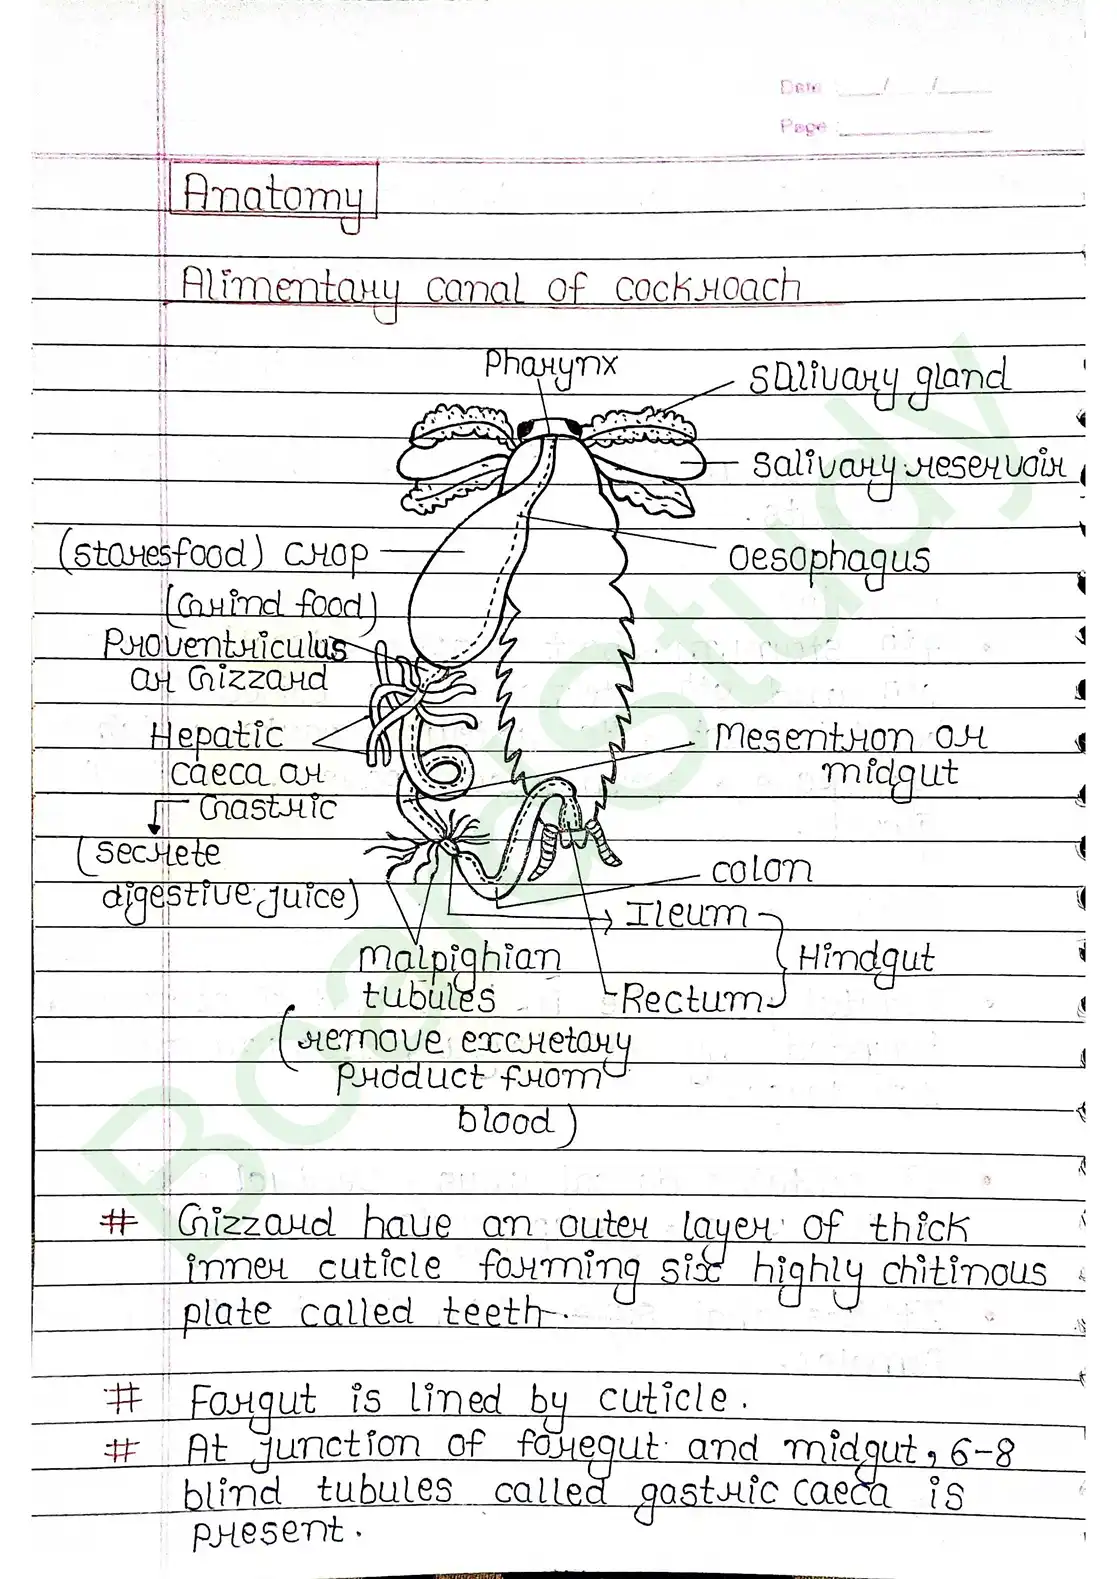 Date : __/__/__
Page :
Anatomy
Alimentary canal of cockroach
Pharynx
salivary gland
salivary reservoir
(stores food) crop
oesophagus
(Grind food)
Proventriculus
or Gizzard
Hepatic
caeca or
Gastric
Mesentron or
midgut
(secrete
digestive juice)
colon
Ileum
Hindgut
Malpighian
tubules
Rectum
(remove excretory
product from
blood)
# Gizzard have an outer layer of thick
inner cuticle forming six highly chitinous
plate called teeth.
# Forgut is lined by cuticle.
# At junction of foregut and midgut, 6-8
blind tubules called gastric caeca is
present.
BoardStudy